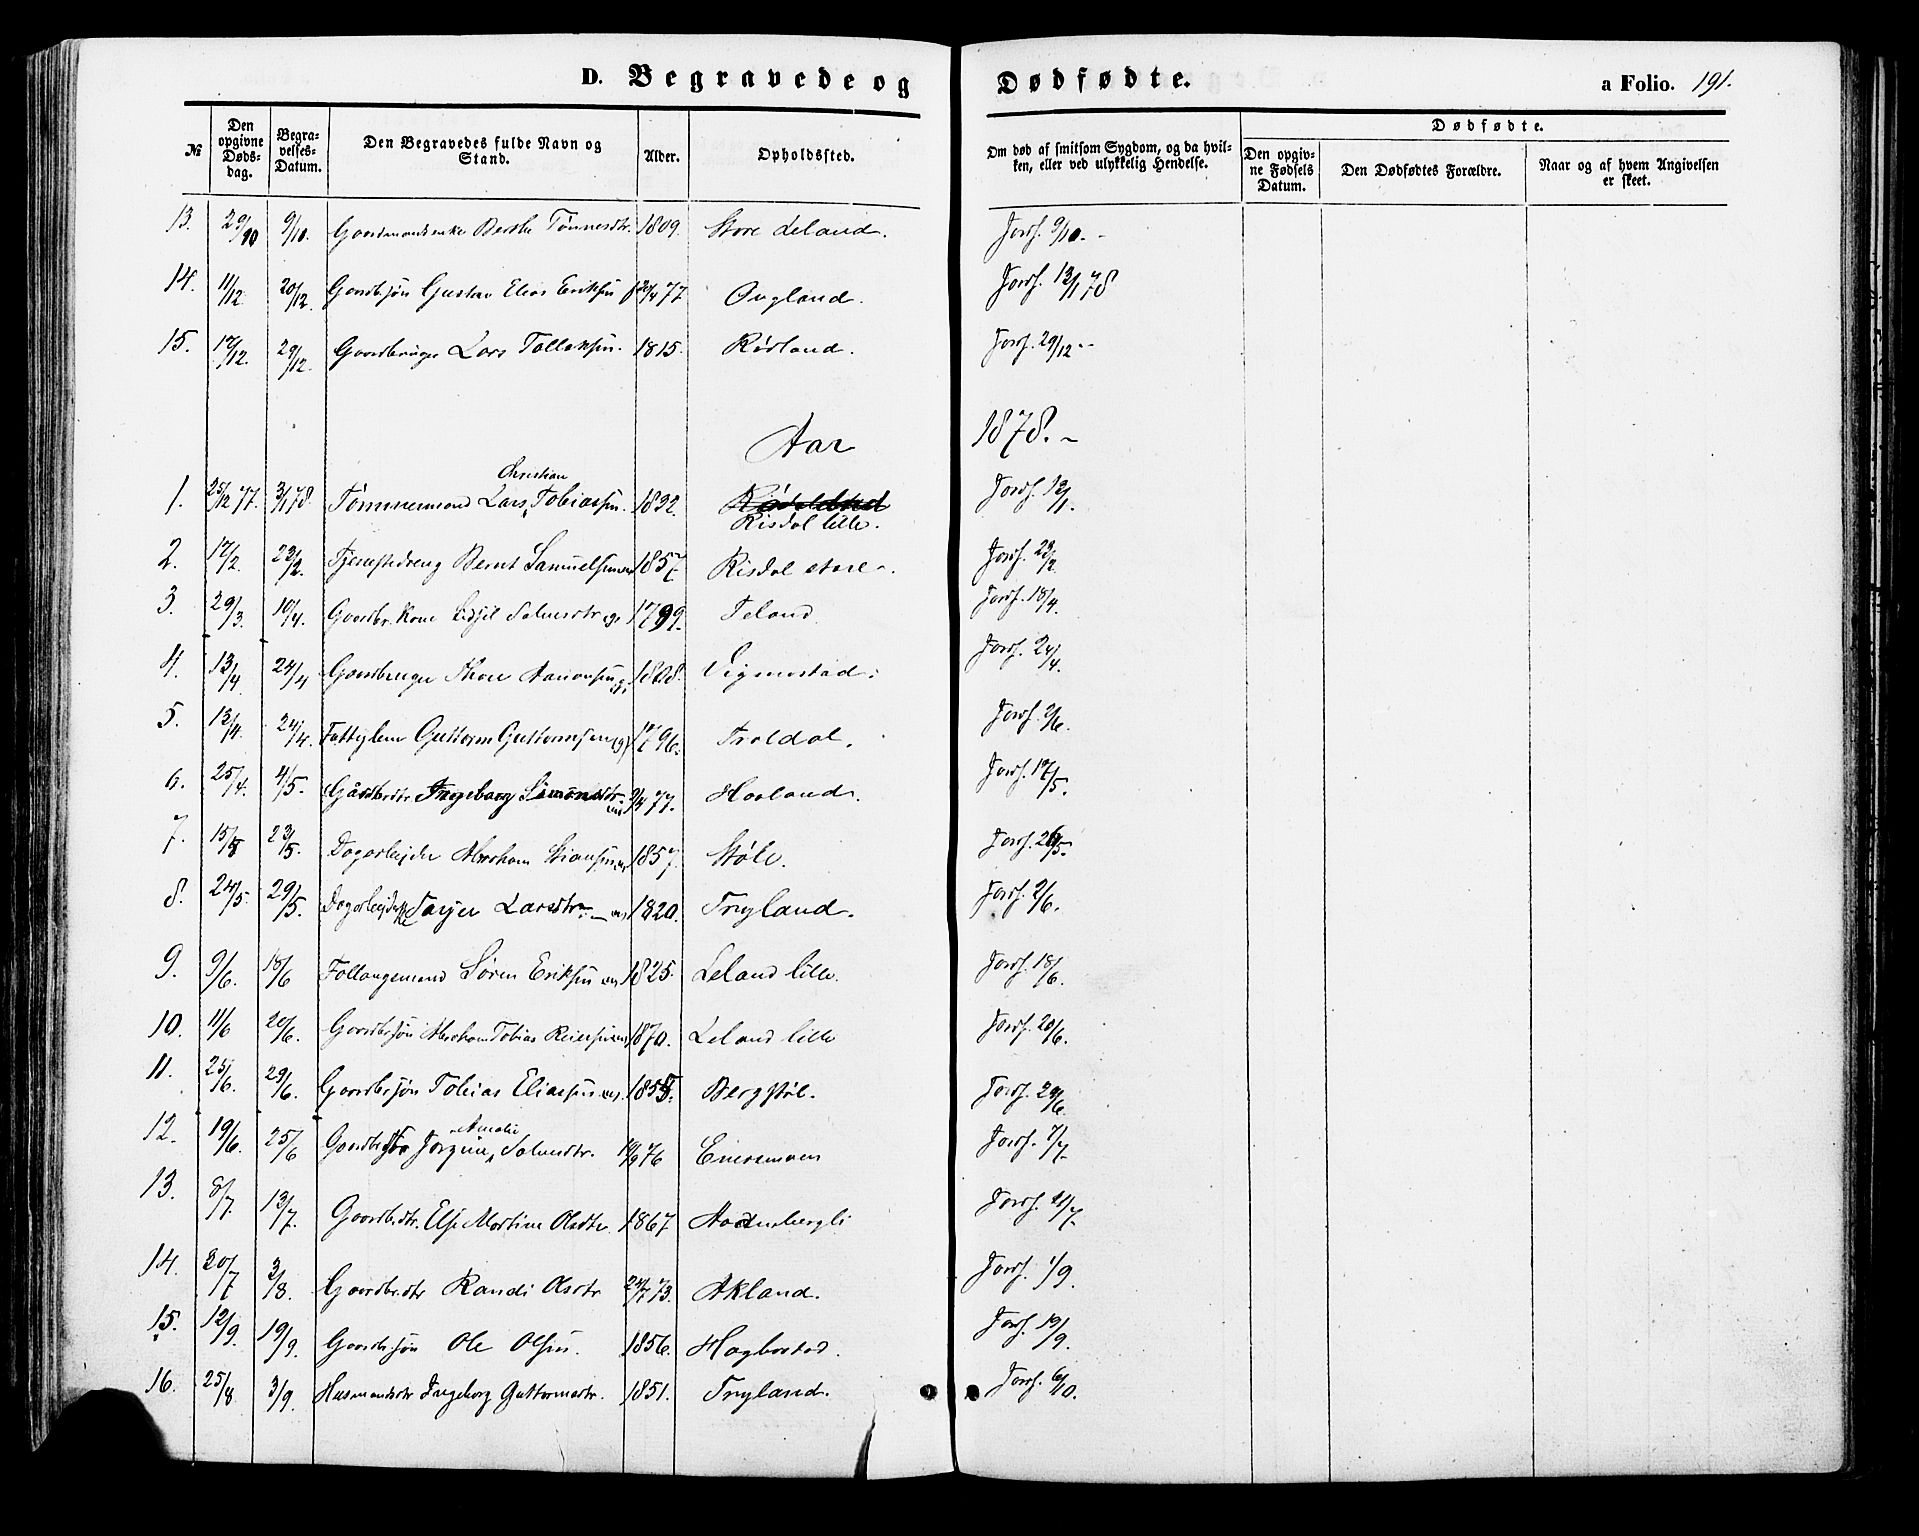 D. Begravede og Dødfødte. a Folio. 191.
№ Den opgivne Døds-dag. Begra-velses-Datum. Den Begravedes fulde Navn og Stand. Alder. Opholdssted. Om død af smitsom Sygdom, og da hvil-ken, eller ved ulykkelig Hendelse. Dødfødte. Den opgiv-ne Fødsels Datum. Den Dødfødtes Forældre. Naar og af hvem Angivelsen er skeet.
13. 29/10 9/10. Berthe Tønnesdtr. 1809. Store Leland. Jordf. 9/10.-
14. 11/12 20/12. Gaardbrsøn Gustav Elias Eriksen 77 Ougland. Jordf. 13/1 78
15. 17/12. 29/12. Gaardbruger Lars Tollaksen. 1815. Rødland. Jordf. 29/12--
Aar 1878.-
Christian
1. 25/12 77. 3/1 78. Tømmermand Lars Tobiassen. 1832. Jordf. 12/1.
Risdal lille.
2. 17/2. 23/2. Tjenestedreng Bernt Samuelsen 1857 Risdal store-. Jordf. 23/2.
3. 29/3. 10/4. Gaardbr. Kone Sidsel Salvesdtr 1799. Jordf. 18/4.
4. 13/4. 24/4 Gaardbruger Thore Aanonsen 1808. Vigmostad. Jordf. 24/4.
5. 13/4. 24/4. Fattiglem Guttorm Guttormsen 1796. Troldal. Jordf. 2/6.
6. 25/4. 4/5. Gaardbrdtr. Ingeborg Simonsdtr. 77. Haaland. Jordf. 17/5.
7. 15/5 23/5. Dagarbejder Abraham 1857. Støle. Jordf. 26/5.
8. 24/5. 29/5. Tarjer Larsdtr. 1820. Tryland. Jordf. 2/6.
9. 9/6. 18/6 Føllaugsmand Søren Eriksen 1825. Leland lille. Jordf. 18/6.
10. 11/6 20/6. Gaardbrsøn Abraham Tobias Reiersen 1870. Leland lille Jordf. 20/6.
11. 25/6. 29/6. Gaardbrsøn Tobias Eliassen 1855. Bergstøl. Jordf. 29/6.
Amalie
12. 19/6. 25/6 Jorgine Salvesdtr. 76 Jordf. 7/7
13. 8/7. 13/7. Gaardbrdtr. Else Martine Olsdtr. 1867 Jordf. 21/7.
14. 20/7 3/8. Gaardbrdtr Randi Olsdtr 73. Akland. Jordf. 1/9.
15. 12/9. 19/9. Gaardbrsøn Ole Olsen. 1856. Hogbostad. Jordf. 19/9.
16. 25/8 3/9. Husmandsdtr Ingeborg Guttormsdtr. 1851. Tryland. Jordf. 6/10.